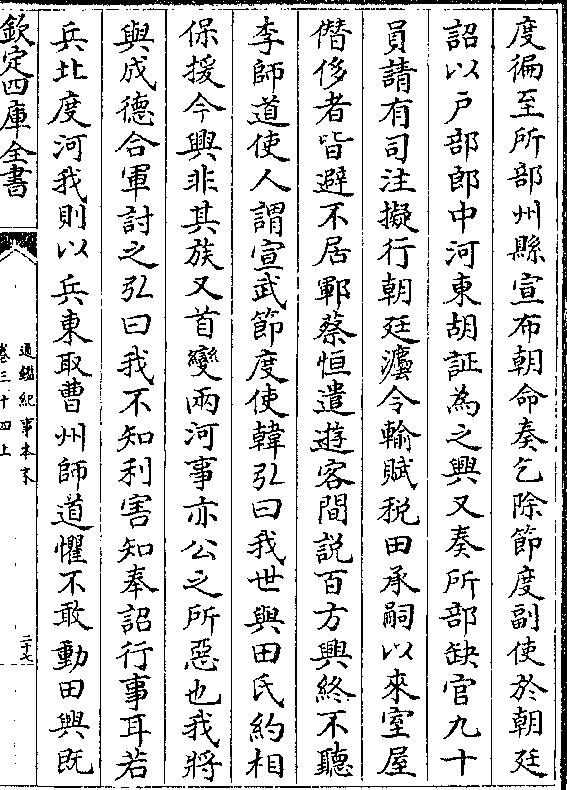 度徧至所部州縣宣布朝命奏乞除節度副使於朝廷
詔以戶部郎中河東胡証為之興又奏所部缺官九十
員請有司注擬行朝廷灋令輸賦税田承嗣以來室屋
僭侈者皆避不居鄆蔡恒遣遊客間説百方興終不聽
李師道使人謂宣武節度使韓弘曰我世與田氏約相
保援今興非其族又首變兩河事亦公之所惡也我將
與成德合軍討之弘曰我不知利害知奉詔行事耳若
兵北度河我則以兵東取曹州師道懼不敢動田興既
欽定四庫全書
通鑑紀事本末
卷三十四上
二十七